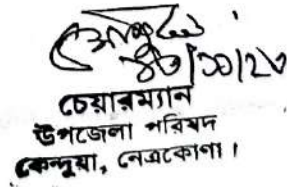 চেয়ারম্যান
উপজেলা পরিষদ
কেন্দুয়া, নেত্রকোণা।